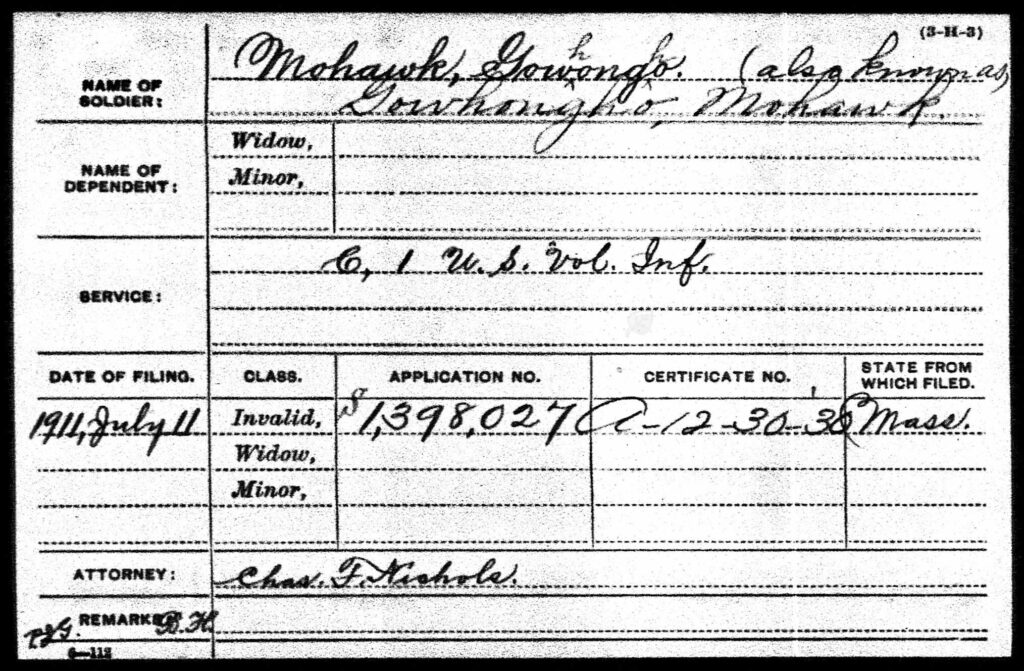 (3-H-3)
NAME OF SOLDIER: Mohawk, Gowhongho. (also known as,
Gowhongho, Mohawk.
NAME OF DEPENDENT:
Widow,
Minor,
SERVICE: C, 1 U. S. Vol. Inf.
DATE OF FILING. CLASS. APPLICATION NO. CERTIFICATE NO. STATE FROM WHICH FILED.
1911, July 11 Invalid, 1,398,027 A-12-30-30 Mass.
Widow,
Minor,
ATTORNEY: Chas. F. Nichols.
REMARKS: B.H.